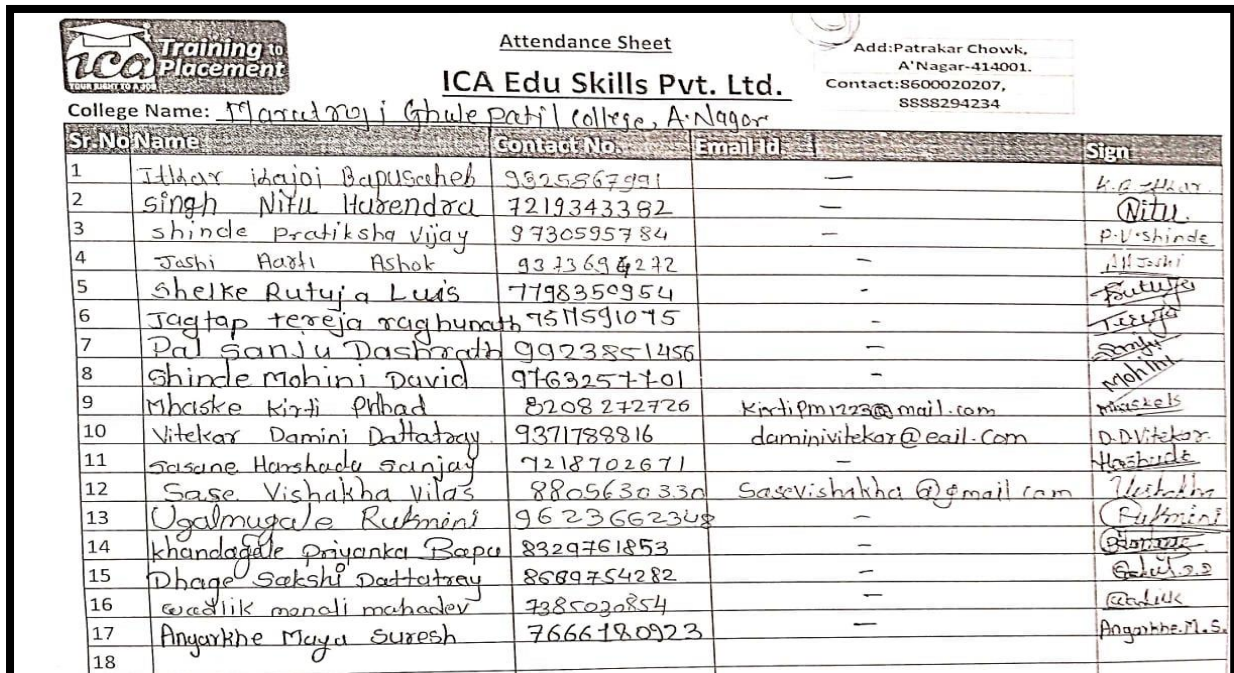 ica Training to Placement
YOUR RIGHT TO A JOB
Attendance Sheet
ICA Edu Skills Pvt. Ltd.
Add:Patrakar Chowk,
A'Nagar-414001.
Contact:8600020207,
8888294234
College Name: Marutraoji Ghule Patil College, A.Nagar
Sr.No Name Contact No. Email Id Sign
1 Bapusaheb 9325867991 —
2 Singh Nitu Harendra 7219343382 — Nitu.
3 shinde pratiksha vijay 9730595784 — P.V.shinde
4 Joshi Aarti Ashok — Joshi
5 Shelke Rutuja Luis 7798350954 - Rutuja
6 Jagtap tereja raghunath - Tereja
7 Pal Sanju Dashrath 9923851456 - Sanju
8 Shinde Mohini David - Mohini
9 Mhaske Kirti 8208272726 KirtiPm1223@mail.com
10 Vitekar Damini Dattatray 9371788816 daminivitekar@eail.com D.D.Vitekar.
11 Sasane Harshada Sanjay 7218702671 —
12 Sase Vishakha Vilas 8805630330 Sasevishakha@gmail com Vishakha
13 Ugalmugale Rukmini 9623662348 — Rukmini
14 khandagale Priyanka Bapu 8329761853 —
15 Dhage Sakshi Dattatray 8669754282 —
16 wadlik manali mahadev 7385020854 — wadlik
17 Angarkhe Maya Suresh 7666180923 — Angarkhe.M.S.
18